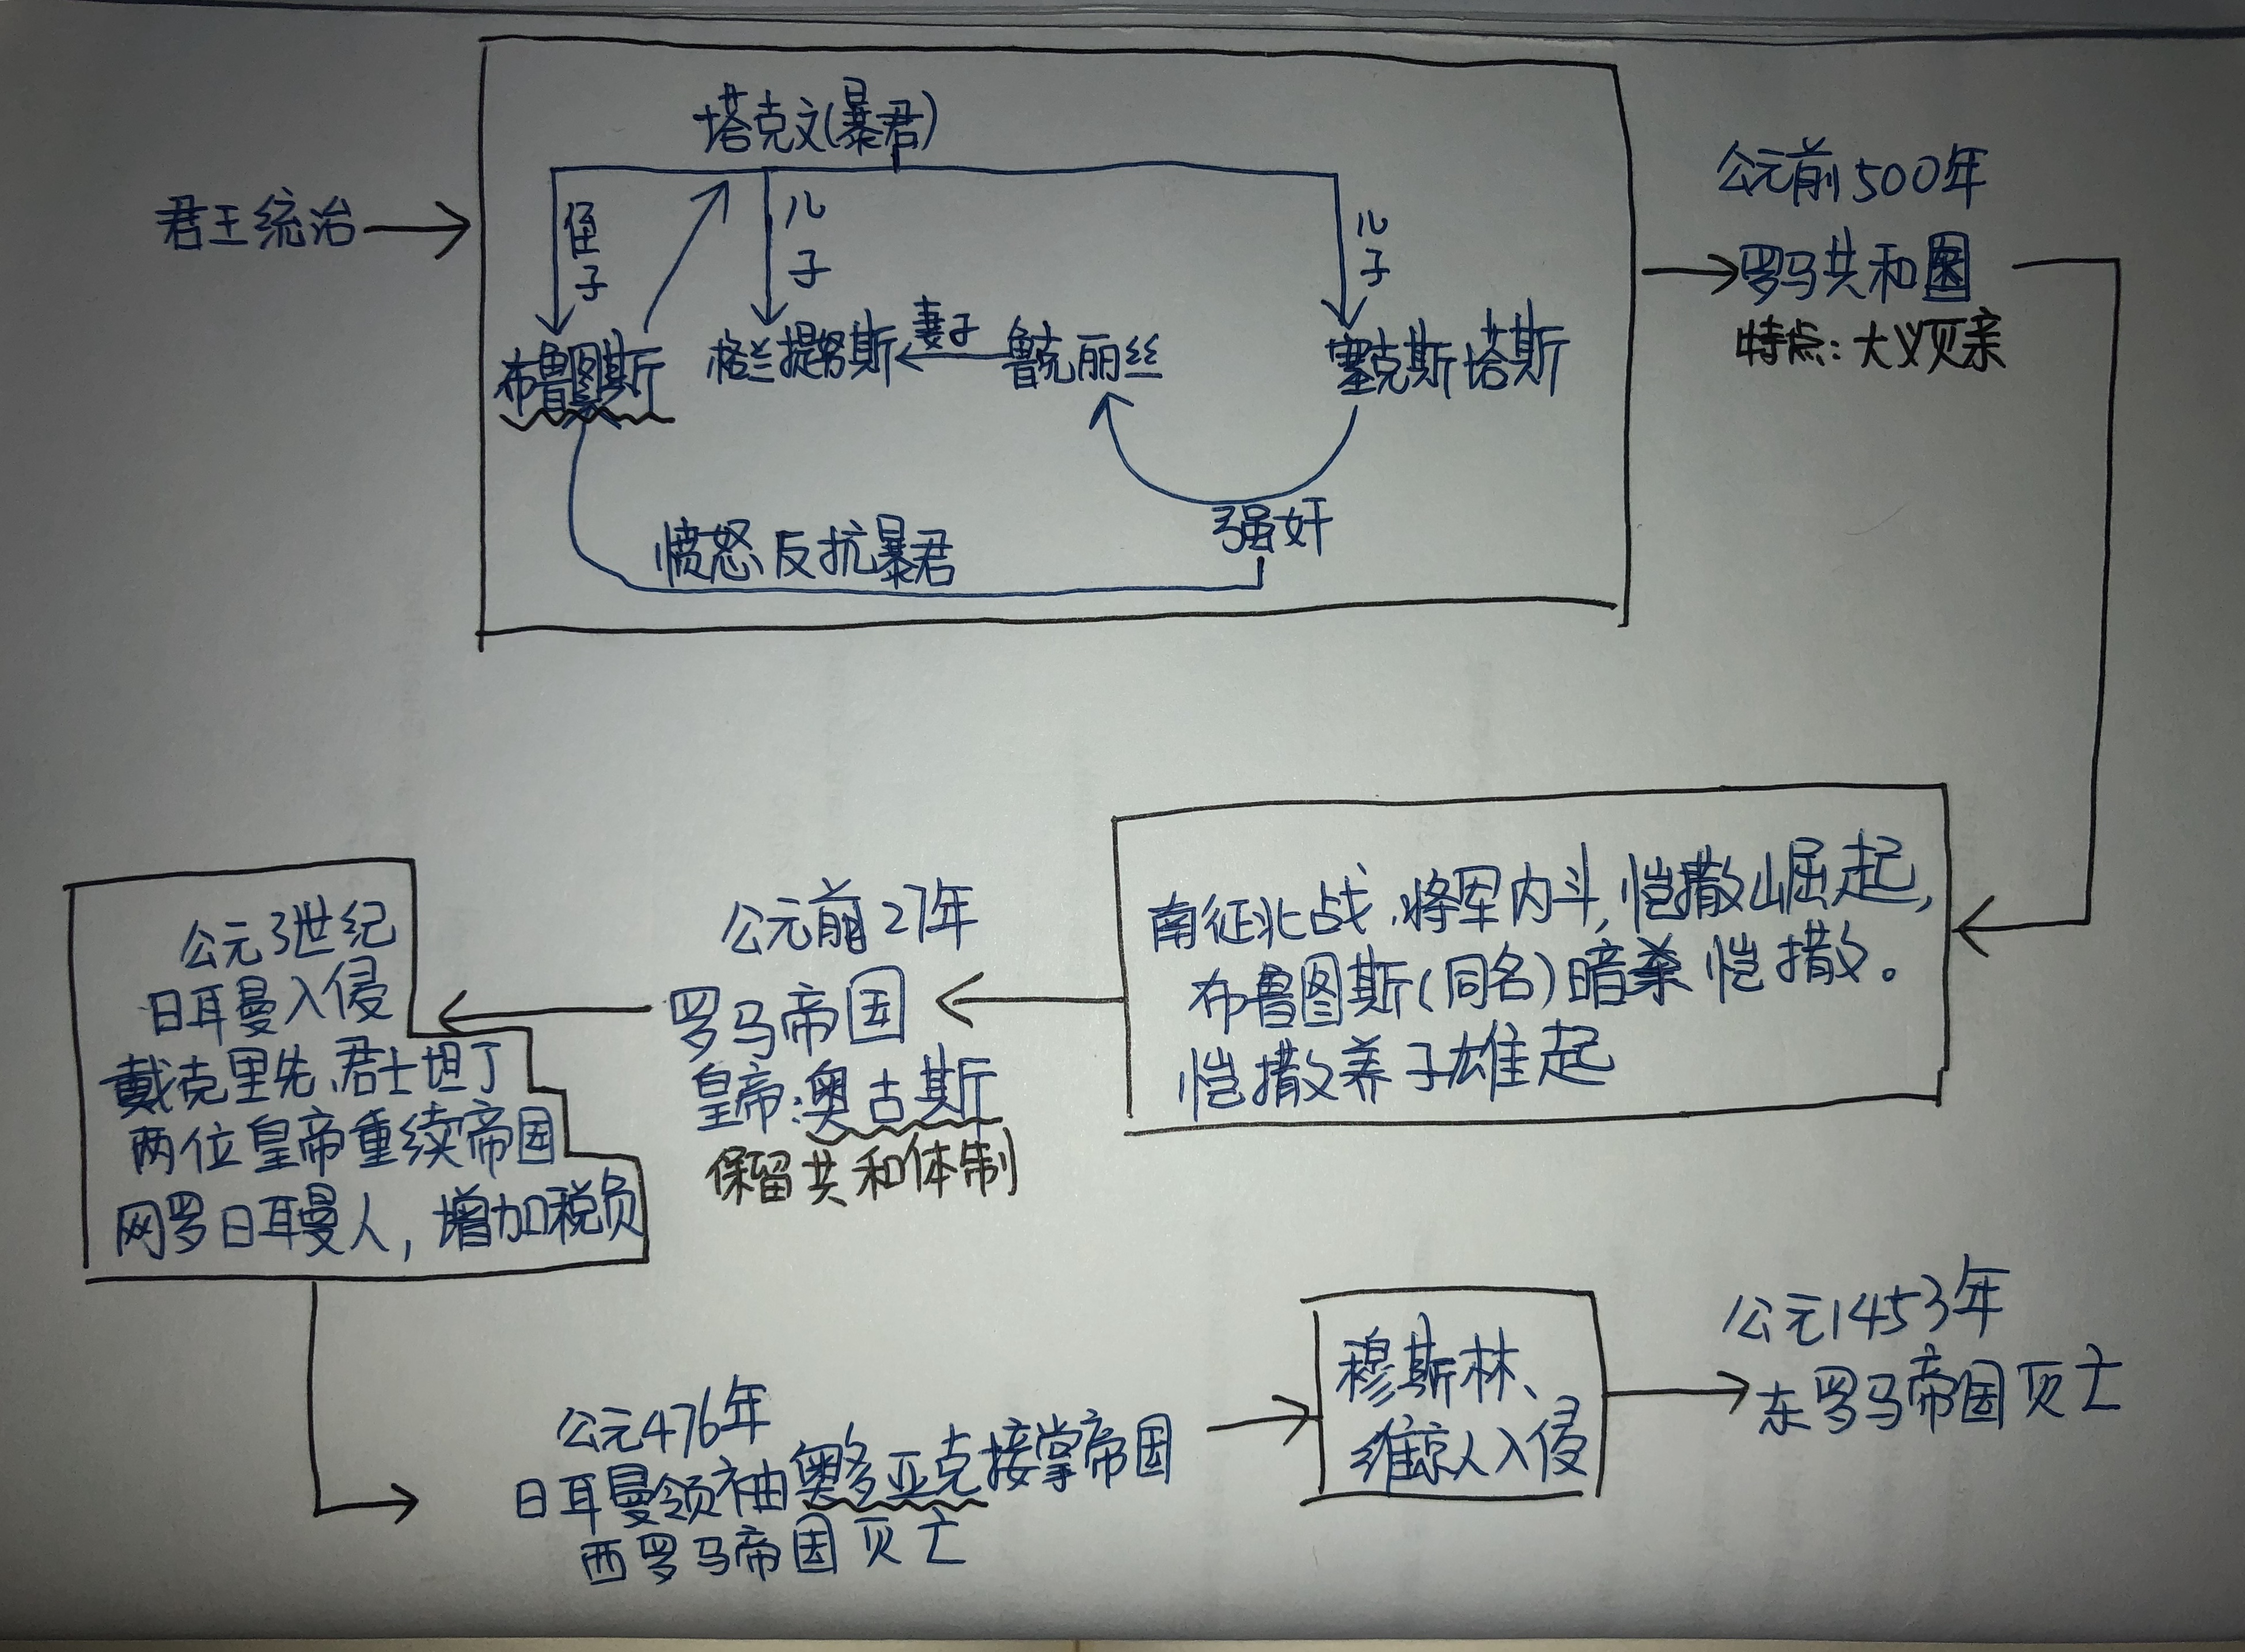 塔克文(暴君)
君王统治
侄子
儿子
儿子
布鲁图斯
格兰提努斯
妻子
鲁克丽丝
塞克斯塔斯
愤怒、反抗暴君
强奸
公元前500年
罗马共和国
特点:大义灭亲
南征北战、将军内斗,恺撒崛起,
布鲁图斯(同名)暗杀恺撒。
恺撒养子雄起
公元前27年
罗马帝国
皇帝:奥古斯
保留共和体制
公元3世纪
日耳曼入侵
戴克里先、君士坦丁
两位皇帝重续帝国
网罗日耳曼人,增加税负
公元476年
日耳曼领袖奥多亚克接掌帝国
西罗马帝国灭亡
穆斯林、
维京人入侵
公元1453年
东罗马帝国灭亡